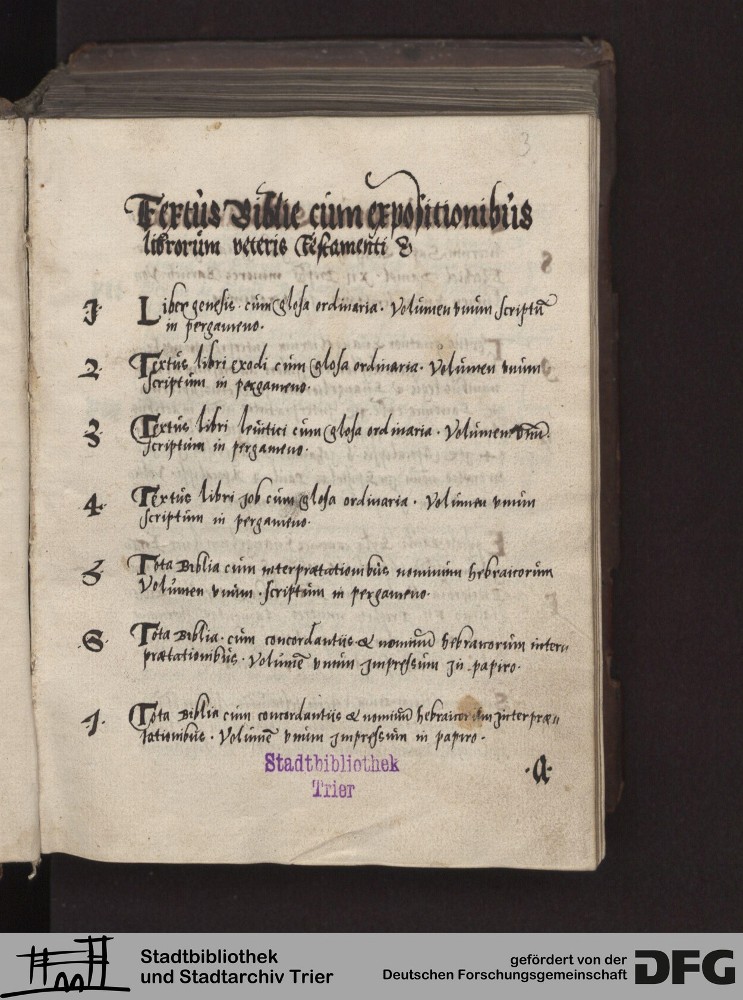 3
Textus Biblie cum expositionibus
librorum veteris Testamenti &
·1· Liber genesis · cum glosa ordinaria · Volumen vnum scriptū
in pergameno ·
·2· Textus libri exodi cum glosa ordinaria · Volumen vnum
scriptum in pergameno ·
·3· Textus libri leuitici cum glosa ordinaria · Volumen vnū ·
scriptum in pergameno ·
·4· Textus libri Job cum glosa ordinaria · Volumen vnum
scriptum in pergameno ·
·5· Tota Biblia cum interprætationibus nominum hebraicorum
Volumen vnum · scriptum in pergameno ·
·6· Tota Biblia · cum concordantiis & nominū hebraicorum inter„
prætationibus · Volumē vnum Impressum In papiro ·
·7· Tota Biblia cum concordantiis & nominū hebraicorum Interpræ„
tationibus · Volumē vnum Impressum in papiro ·
·a·
Stadtbibliothek
Trier
Stadtbibliothek
und Stadtarchiv Trier
gefördert von der
Deutschen Forschungsgemeinschaft
DFG